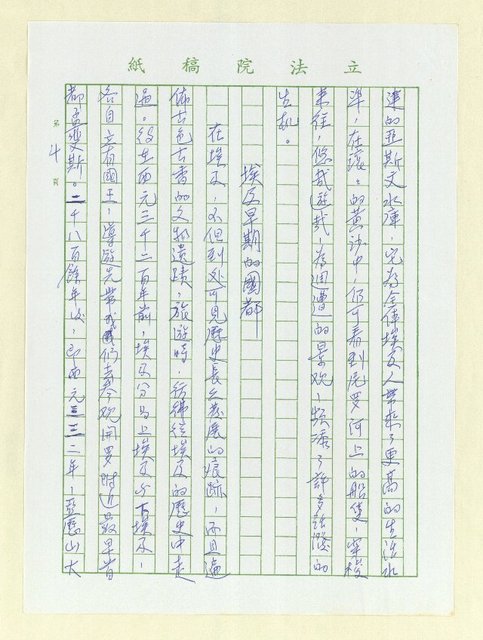 立法院稿紙
建的亞斯文水庫，究為全体埃及人帶來了更高的生活水
準，在滾滾的黃沙中，仍可看到尼羅河上的船隻，穿梭
來往，悠哉遊哉，為週遭的景观，頻添了許多活潑的
生机。
埃及早期的國都
在埃及，不但到处可見歷史長久发展的痕跡，而且遍
佈古色古香的文物遺蹟，旅遊時，彷彿往埃及的歷史中走
過。約在西元三千二百年前，埃及分為上埃及与下埃及，
各自立有國王，導遊先帶我們去參观開罗附近最早首
都孟斐斯。二千八百餘年後，即西元三三二年，亞歷山大
第4頁